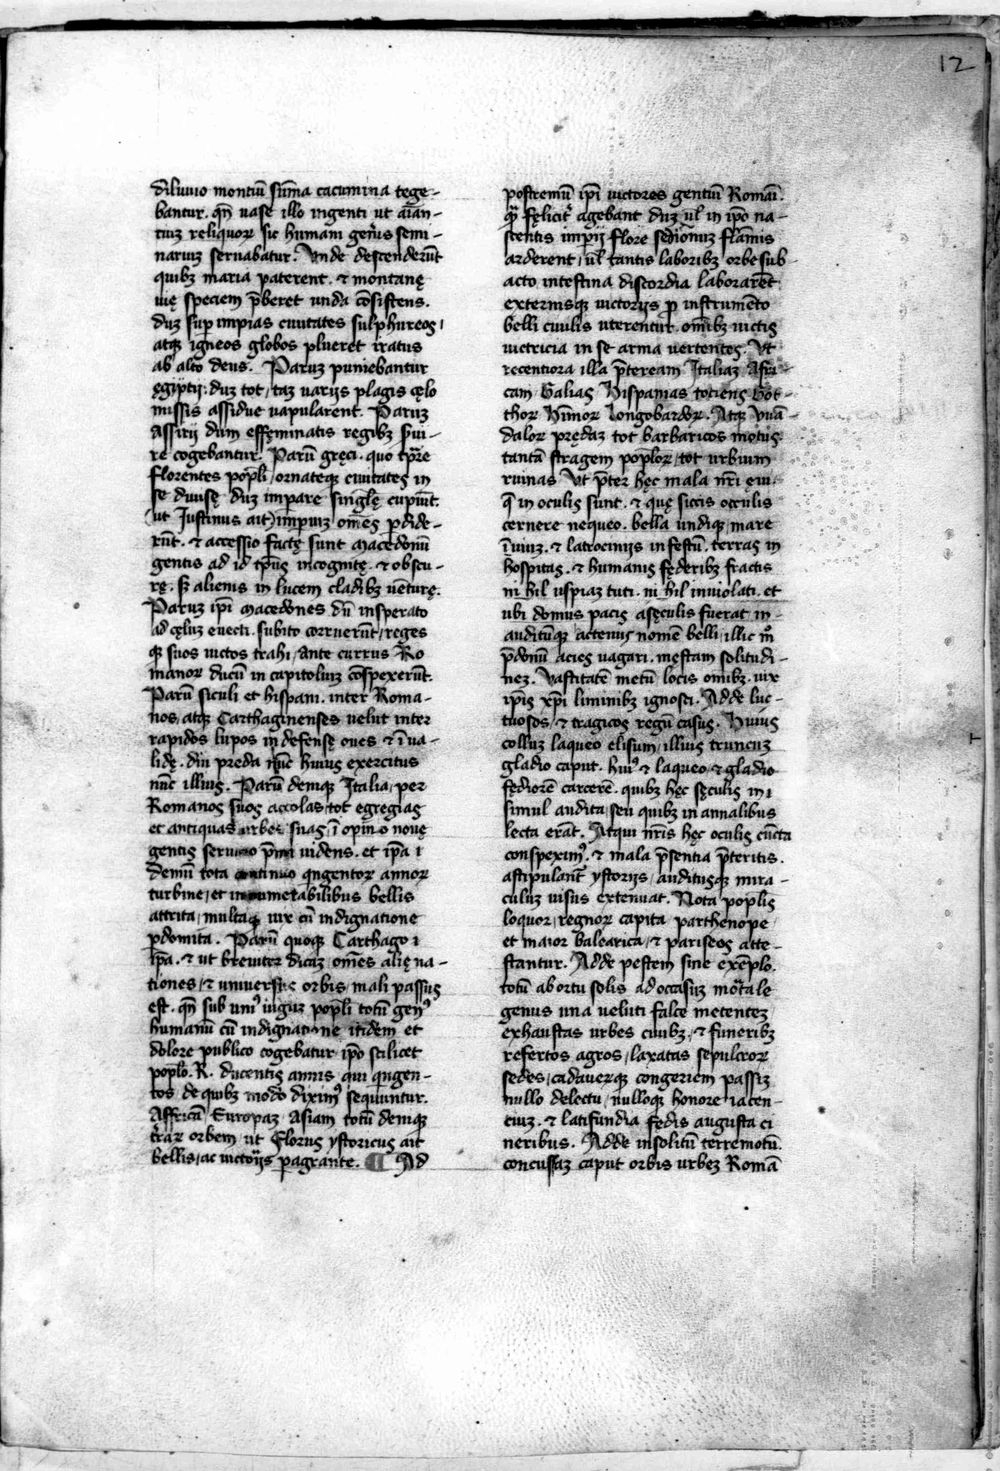 12
diluuio montiū sūma cacumina tege-
bantur. qn̄ vase illo ingenti ut aīan-
tiuȝ reliquoꝝ sic humani gen̄is semi-
nariuȝ seruabatur. Vnde descenderūt
quibȝ maria paterent. & montanę
uię speciem p̄beret unda cōsistens.
duȝ suꝑ impias ciuitates sulphureos,
atqȝ igneos globos plueret iratus
ab alto deus. Paruȝ puniebantur
ęgiptij. duȝ tot, taȝ varijs plagis cęlo
missis assidue vapularent. Paruȝ
assirij dum effęminatis regibȝ ẜui-
re cogebantur. Parū gręci. quo tp̄re
florentes popl̄i, ornateqȝ ciuitates in
se diuisę duȝ imperare singulę cupiūt.
(ut Justinus ait) imperiuȝ om̄es ꝑdide-
rūt. & accessio factę sunt macedonū
gentis ad id tp̄us incognitę. & obscu-
rę. sȝ alienis in lucem cladibȝ uēturę.
Paruȝ ip̄i macedones dū insperato
ad cęluȝ euecti. subito corruerūt, reges
qȝ suos uictos trahi, ante currus Ro
manoꝝ ducū in capitoliuȝ cōspexerūt.
Parū siculi et hispani. inter Roma-
nos, atqȝ Carthaginenses velut inter
rapidos lupos indefensę oues & īua-
lidę. diu preda nūc huius exercitus
nūc illius. Parū demiqȝ Italia, per
Romanos suos accolas, tot egregias
et antiquas urbes suas, ī opinio nouę
gentis seruitio p̄mi uidens. et ip̄a ı
demū tota continuo qngentoꝝ annoꝝ
turbine, et innumerabilibus bellis
attrita, multaqȝ uix cū indignatione
ꝑdomita. Parū quoqȝ Carthago ı
ip̄a. & ut breuiter dicaȝ, om̄es alię na-
tiones, & uniuersus orbis, mali passus
est. qn̄ sub uniꝰ iuguȝ popl̄i totū genꝰ
humanū cū indignatione itidem et
dolore publico cogebatur ip̄o scilicet
poplo. R. ducentis annis qui qngen-
tos, de quibȝ modo diximꝰ sequuntur.
Affricā Europaȝ Asiam totū demiqȝ
t̄raꝝ orbem ut Florus ystoricus ait
bellis, ac uictorijs ꝑagrante. ¶ Ad
postremū ip̄i uictores gentiū Romāi.
qȝ fęliciṫ agebant duȝ ul̄ in ip̄o na-
scentis imperij flore sedioniuȝ flāmis
arderent, ul̄ tantis laboribȝ orbe sub
acto intestina discordia laborarēt
externisqȝ uictorijs ꝓ instrumēto
belli ciuilis uterentur. om̄ibȝ uictis
uictricia in se arma uertentes. Vt
recentiora illa p̄teream Italiaȝ Afri
cam Galias Hispanias totiens Got-
thoꝝ Hūnoꝝ Longobardoꝝ. Atqȝ Vuā
daloꝝ prędaȝ tot barbaricos motus
tantā stragem popl̄oꝝ, tot urbium
ruinas Vt p̄ter hęc mala nr̄i eui.
q̄ in oculis sunt. & quę siccis occulis
cernere nequeo. bella undiqȝ mare
īuiuȝ. & latrocinijs infestū. terras in
hospitas. & humanis fęderibȝ fractis
ni hil uspiaȝ tuti. ni hil inuiolati. et
ubi domus pacis asęculis fuerat in-
auditūqȝ actenus nomē belli, illic m̊
p̄donū acies uagari. męstam solitudi-
neȝ. Vastitatē metū locis omibȝ. uix
ip̄is xp̄i liminibȝ ignosci. Adde luc-
tuosos, & tragicos regū casus. Huius
colluȝ laqueo elisum, illius truncuȝ
gladio caput. huiꝰ & laqueo, & gladio
fediorē carcerē. quibȝ hęc sęculis ni ı
simul audita, seu quibȝ in annalibus
lecta erāt. Atqui nr̄is hęc oculis cūcta
conspeximꝰ. & mala p̄sentia p̄teritis.
astipulant᷑ ystorijs, auditusqȝ mira-
culuȝ uisus extenuat. Nota poplis
loquor, regnoꝝ capita parthenope
et maior balearica, & pariseos atte-
stantur. Adde pestem sine exēplo.
totū abortu solis ad occasuȝ mōtale
genus una ueluti falce metenteȝ
exhaustas urbes ciuibȝ. & funeribȝ
refertos agros, laxatas sepulcroꝝ
sedes, cadaverqȝ congeriem passiȝ
nullo delectu, nulloqȝ honore iacen-
ciuȝ. & latifundia fedis augusta ci
neribus. Adde insolitū terremotū.
concussaȝ caput orbis urbeȝ Romā